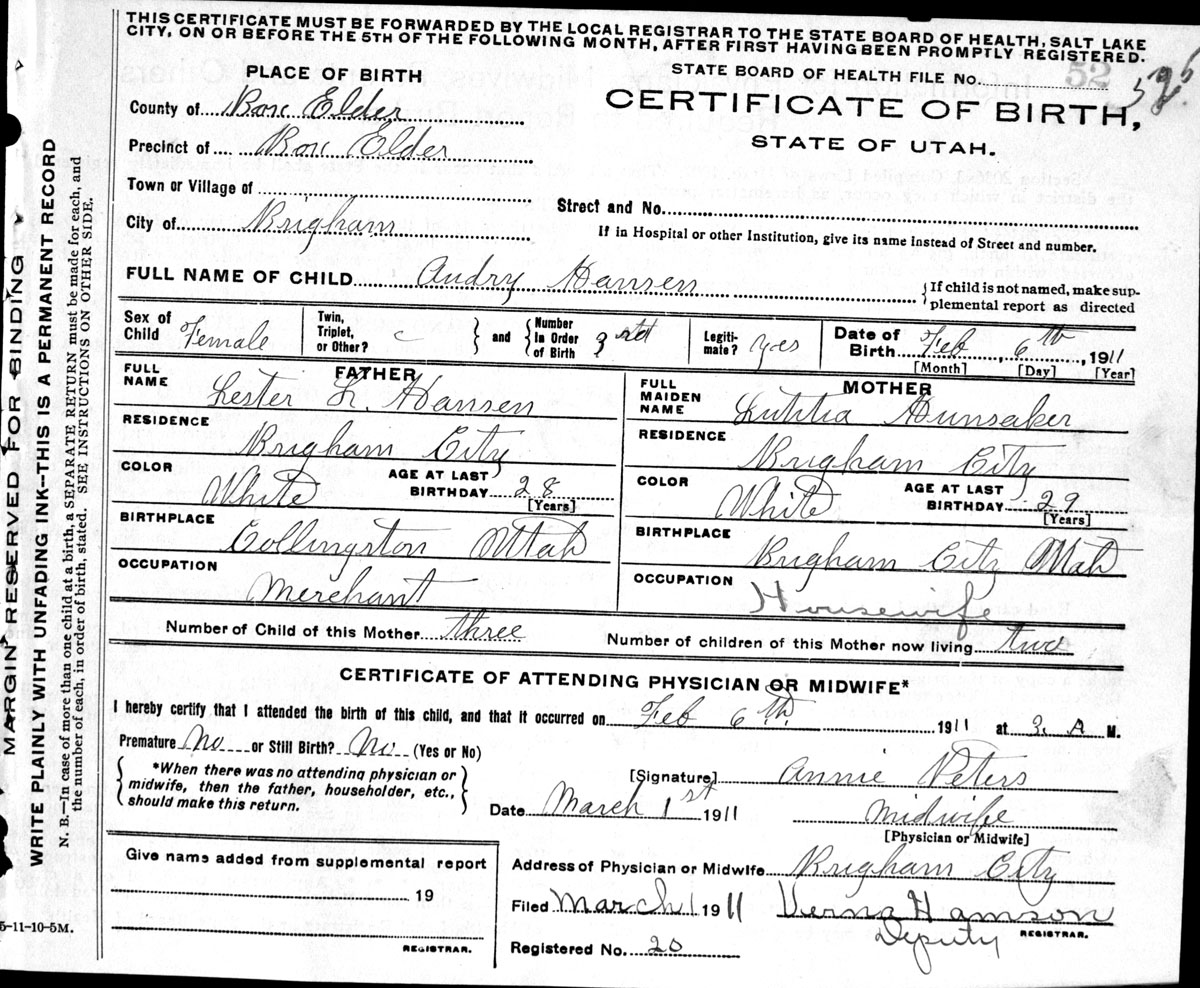 THIS CERTIFICATE MUST BE FORWARDED BY THE LOCAL REGISTRAR TO THE STATE BOARD OF HEALTH, SALT LAKE
CITY, ON OR BEFORE THE 5TH OF THE FOLLOWING MONTH, AFTER FIRST HAVING BEEN PROMPTLY REGISTERED.
PLACE OF BIRTH
STATE BOARD OF HEALTH FILE No. 52
County of Box Elder
CERTIFICATE OF BIRTH,
STATE OF UTAH.
Precinct of Box Elder
Town or Village of
Street and No.
City of Brigham
If in Hospital or other Institution, give its name instead of Street and number.
FULL NAME OF CHILD Audry Hansen
{If child is not named, make sup-
plemental report as directed
Sex of Child Female
Twin, Triplet, or Other?
and
Number in Order of Birth 3rd
Legiti-mate? yes
Date of Birth Feb 6th, 1911
[Month] [Day] [Year]
FATHER
FULL NAME Lester L. Hansen
RESIDENCE Brigham City
COLOR White
AGE AT LAST BIRTHDAY 28 [Years]
BIRTHPLACE Collingston Utah
OCCUPATION Merchant
MOTHER
FULL MAIDEN NAME Hunsaker
RESIDENCE Brigham City
COLOR White
AGE AT LAST BIRTHDAY 29 [Years]
BIRTHPLACE Brigham City Utah
OCCUPATION Housewife
Number of Child of this Mother three
Number of children of this Mother now living two
CERTIFICATE OF ATTENDING PHYSICIAN OR MIDWIFE*
I hereby certify that I attended the birth of this child, and that it occurred on Feb 6th 1911 at 3. A M.
Premature No or Still Birth? No (Yes or No)
{*When there was no attending physician or
midwife, then the father, householder, etc.,
should make this return.}
[Signature] Annie Peters
Date March 1st 1911
Midwife
[Physician or Midwife]
Give name added from supplemental report
19
REGISTRAR.
Address of Physician or Midwife Brigham City
Filed March 1 1911
Verna Hamson
Deputy REGISTRAR.
Registered No. 20
MARGIN RESERVED FOR BINDING
WRITE PLAINLY WITH UNFADING INK—THIS IS A PERMANENT RECORD
N. B.—In case of more than one child at a birth, a SEPARATE RETURN must be made for each, and
the number of each, in order of birth, stated. SEE INSTRUCTIONS ON OTHER SIDE.
5-11-10-5M.